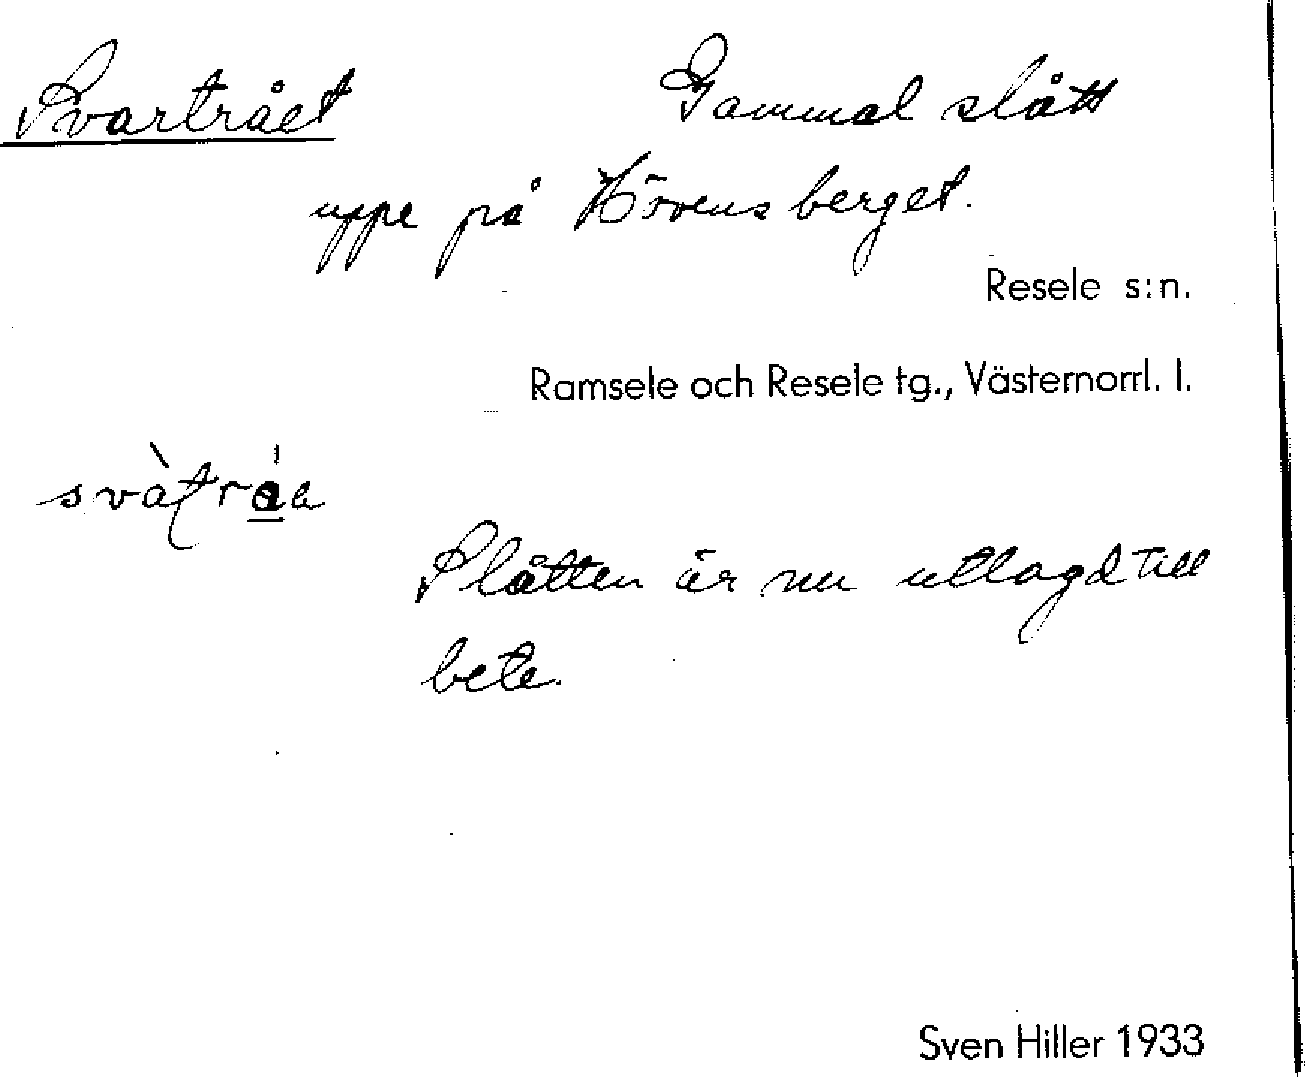 Svartrået Gammal slått
uppe på Hörensberget.
Resele s:n.
Ramsele och Resele tg., Västernorrl. l.
Slåtten är nu utlagd till
bete.
Sven Hiller 1933